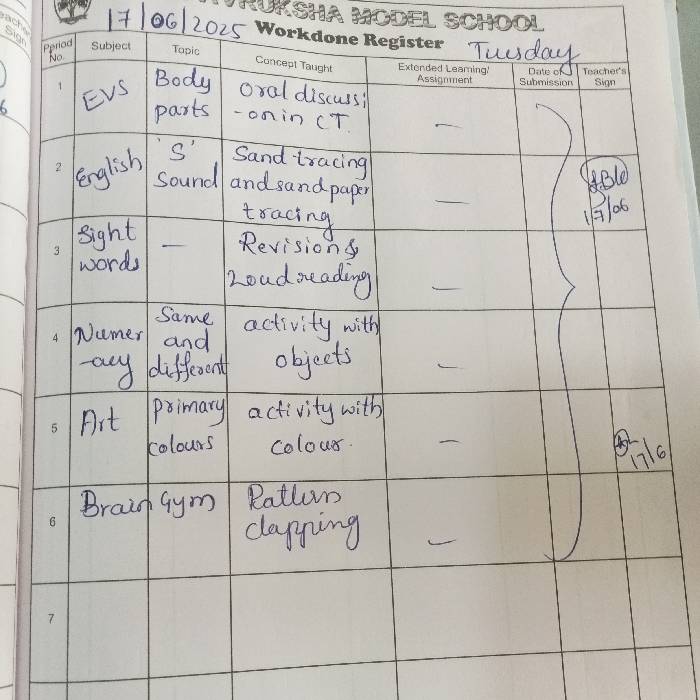 MODEL SCHOOL
17/06/2025 Workdone Register Tuesday
Period No. Subject Topic Concept Taught Extended Learning/ Assignment Date of Submission Teacher's Sign
1 EVS Body parts Oral discussi -on in CT. —
2 English 'S' Sound Sand tracing and sand paper tracing —
17/06
3 Sight words — Revision & Loud reading —
4 Numer -acy Same and different activity with objects —
5 Art primary colours activity with colour. —
17/6
6 Brain Gym clapping —
7